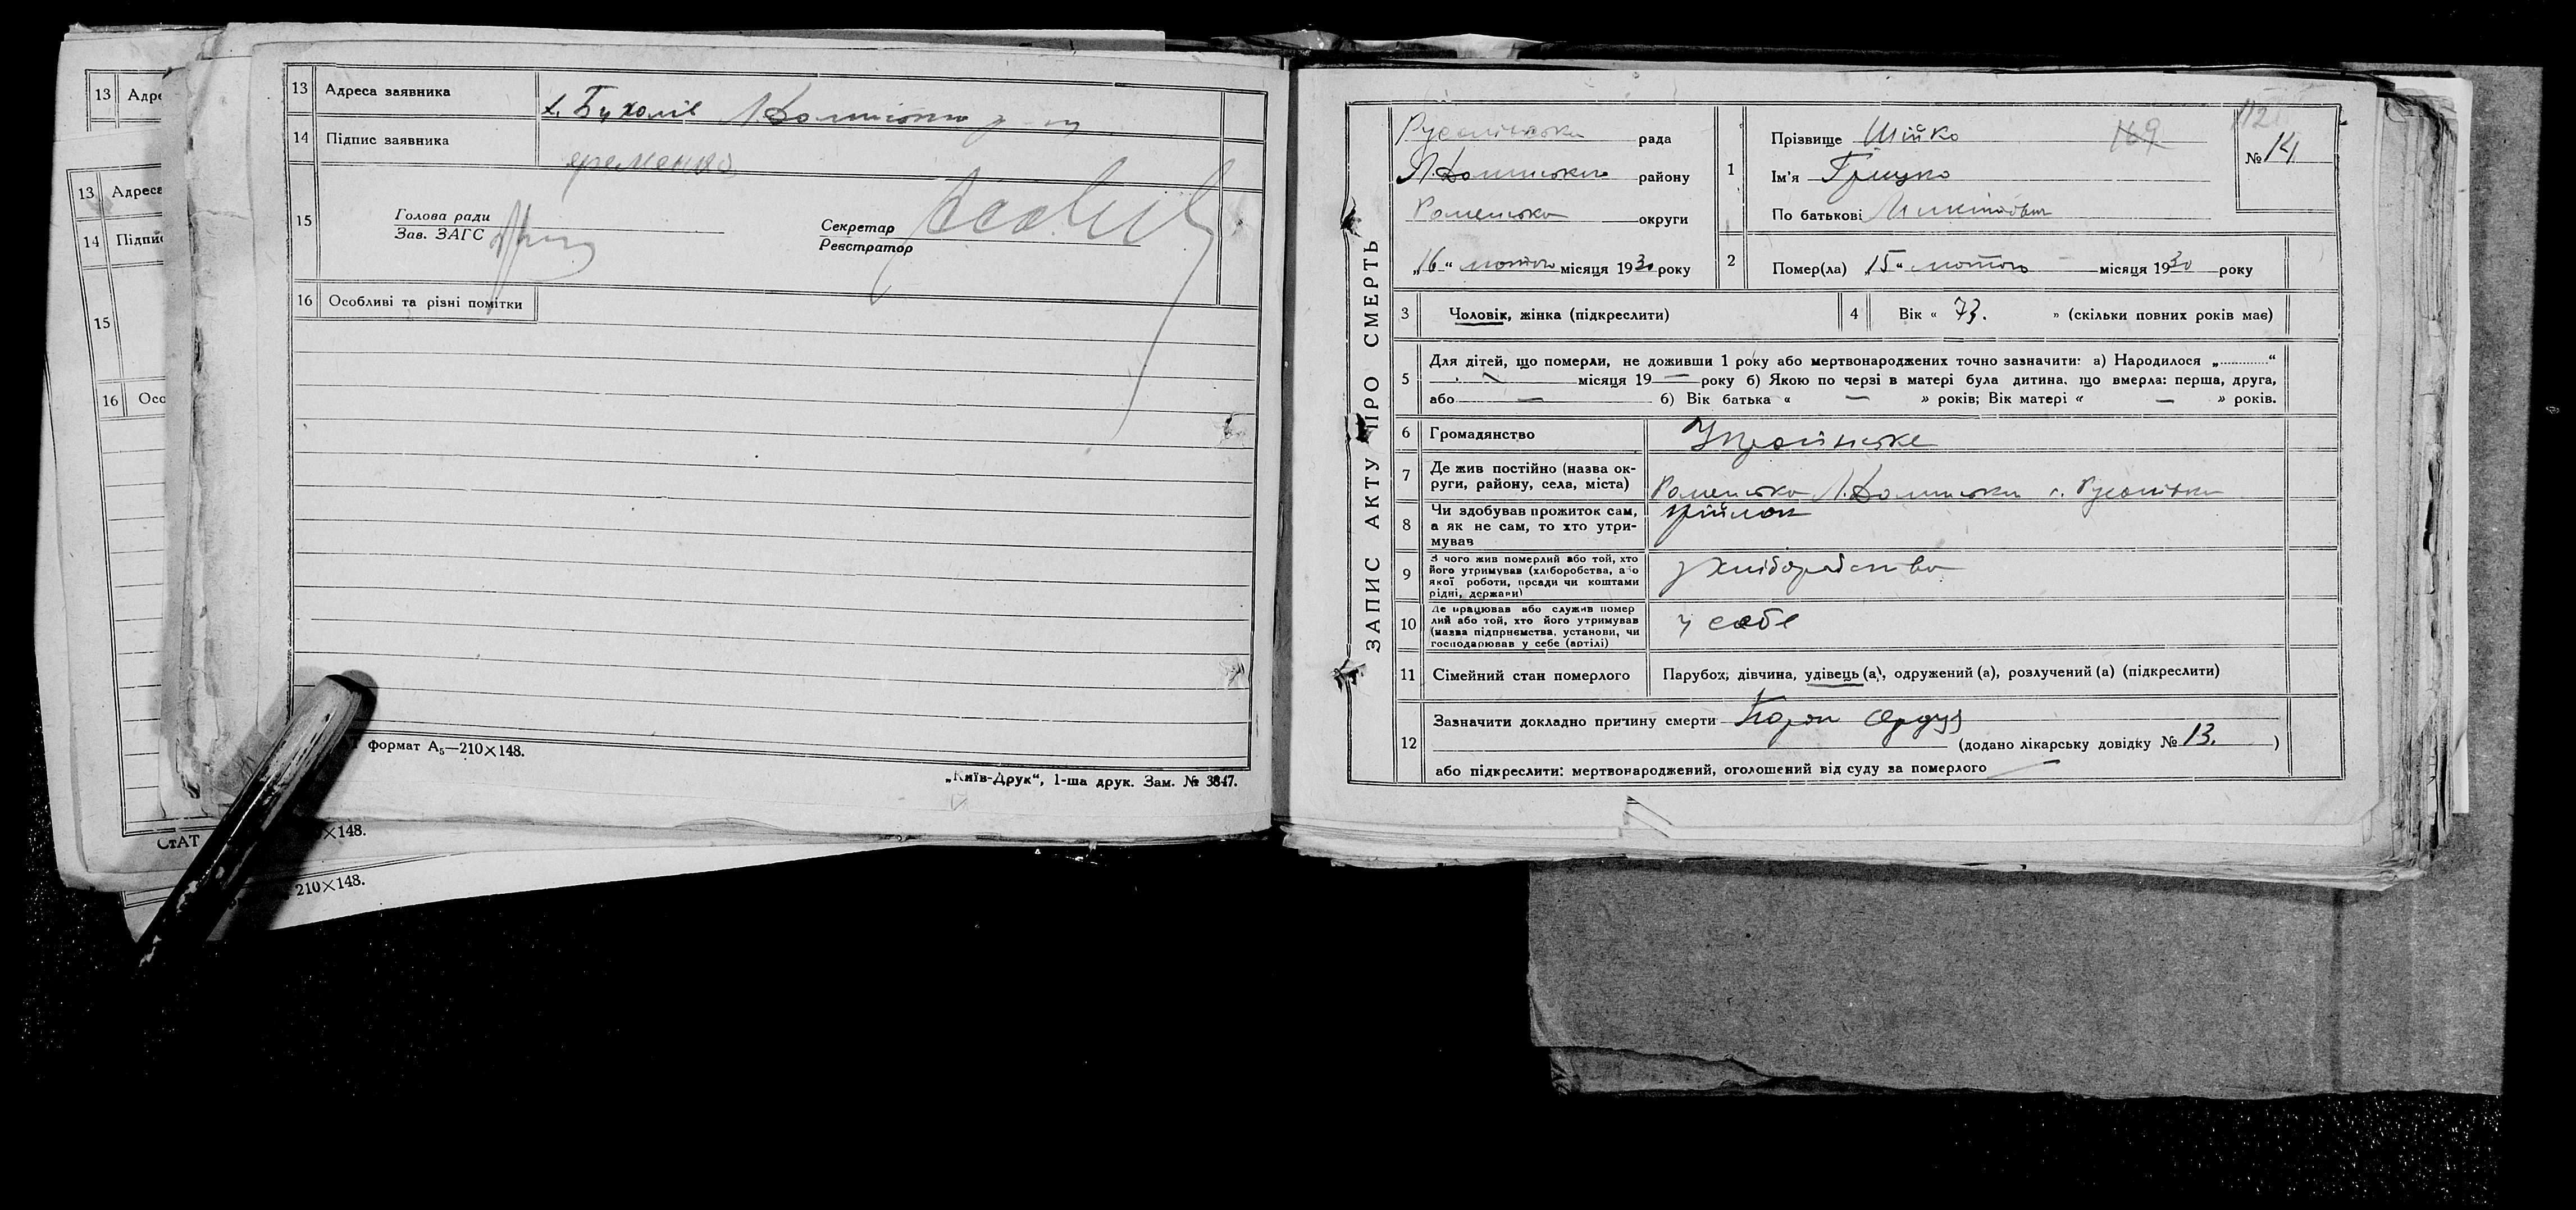 13 Адре
13 Адреса
14 Підпис
15
16 Осо
СтАТ
×148.
210×148.
13 Адреса заявника х. Бухалів Л. Долинського р-ну
14 Підпис заявника Яременко
15 Голова ради
Зав. ЗАГС
Секретар
Реєстратор
16 Особливі та різні помітки
формат А₅—210×148.
„Київ-Друк“, 1-ша друк. Зам. № 3847.
ЗАПИС АКТУ ПРО СМЕРТЬ
Русанівська рада
Л. Долинського району
Роменська округи
„16“ лютого місяця 1930 року
112
169
№ 14
1 Прізвище Шійко
Ім'я Грицко
По батькові Микитович
2 Помер(ла) „15“ лютого місяця 1930 року
3 Чоловік, жінка (підкреслити)
4 Вік « 73. » (скільки повних років має)
5 Для дітей, що померли, не доживши 1 року або мертвонароджених точно зазначити: а) Народилося „..........“
— місяця 19— року б) Якою по черзі в матері була дитина, що вмерла: перша, друга,
або — б) Вік батька « — » років; Вік матері « — » років.
6 Громадянство Українське
7 Де жив постійно (назва ок-
руги, району, села, міста) Роменська Л. Долинська с. Русанівка
8 Чи здобував прожиток сам,
а як не сам, то хто утри-
мував
9 З чого жив померлий або той, хто
його утримував (хліборобства, або
якої роботи, посади чи коштами
рідні, держави) з хліборобства
10 Де працював або служив помер
лий або той, хто його утримував
(назва підприємства, установи, чи
господарював у себе (артілі) у себе
11 Сімейний стан померлого Парубок, дівчина, удівець (а), одружений (а), розлучений (а) (підкреслити)
12 Зазначити докладно причину смерти Порок сердця
(додано лікарську довідку № 13. )
або підкреслити: мертвонароджений, оголошений від суду за померлого —